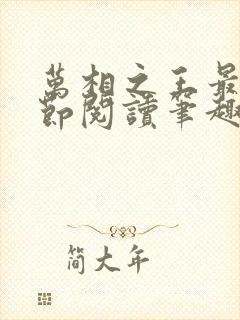 萬相之王最
節閱讀筆趣
简大年